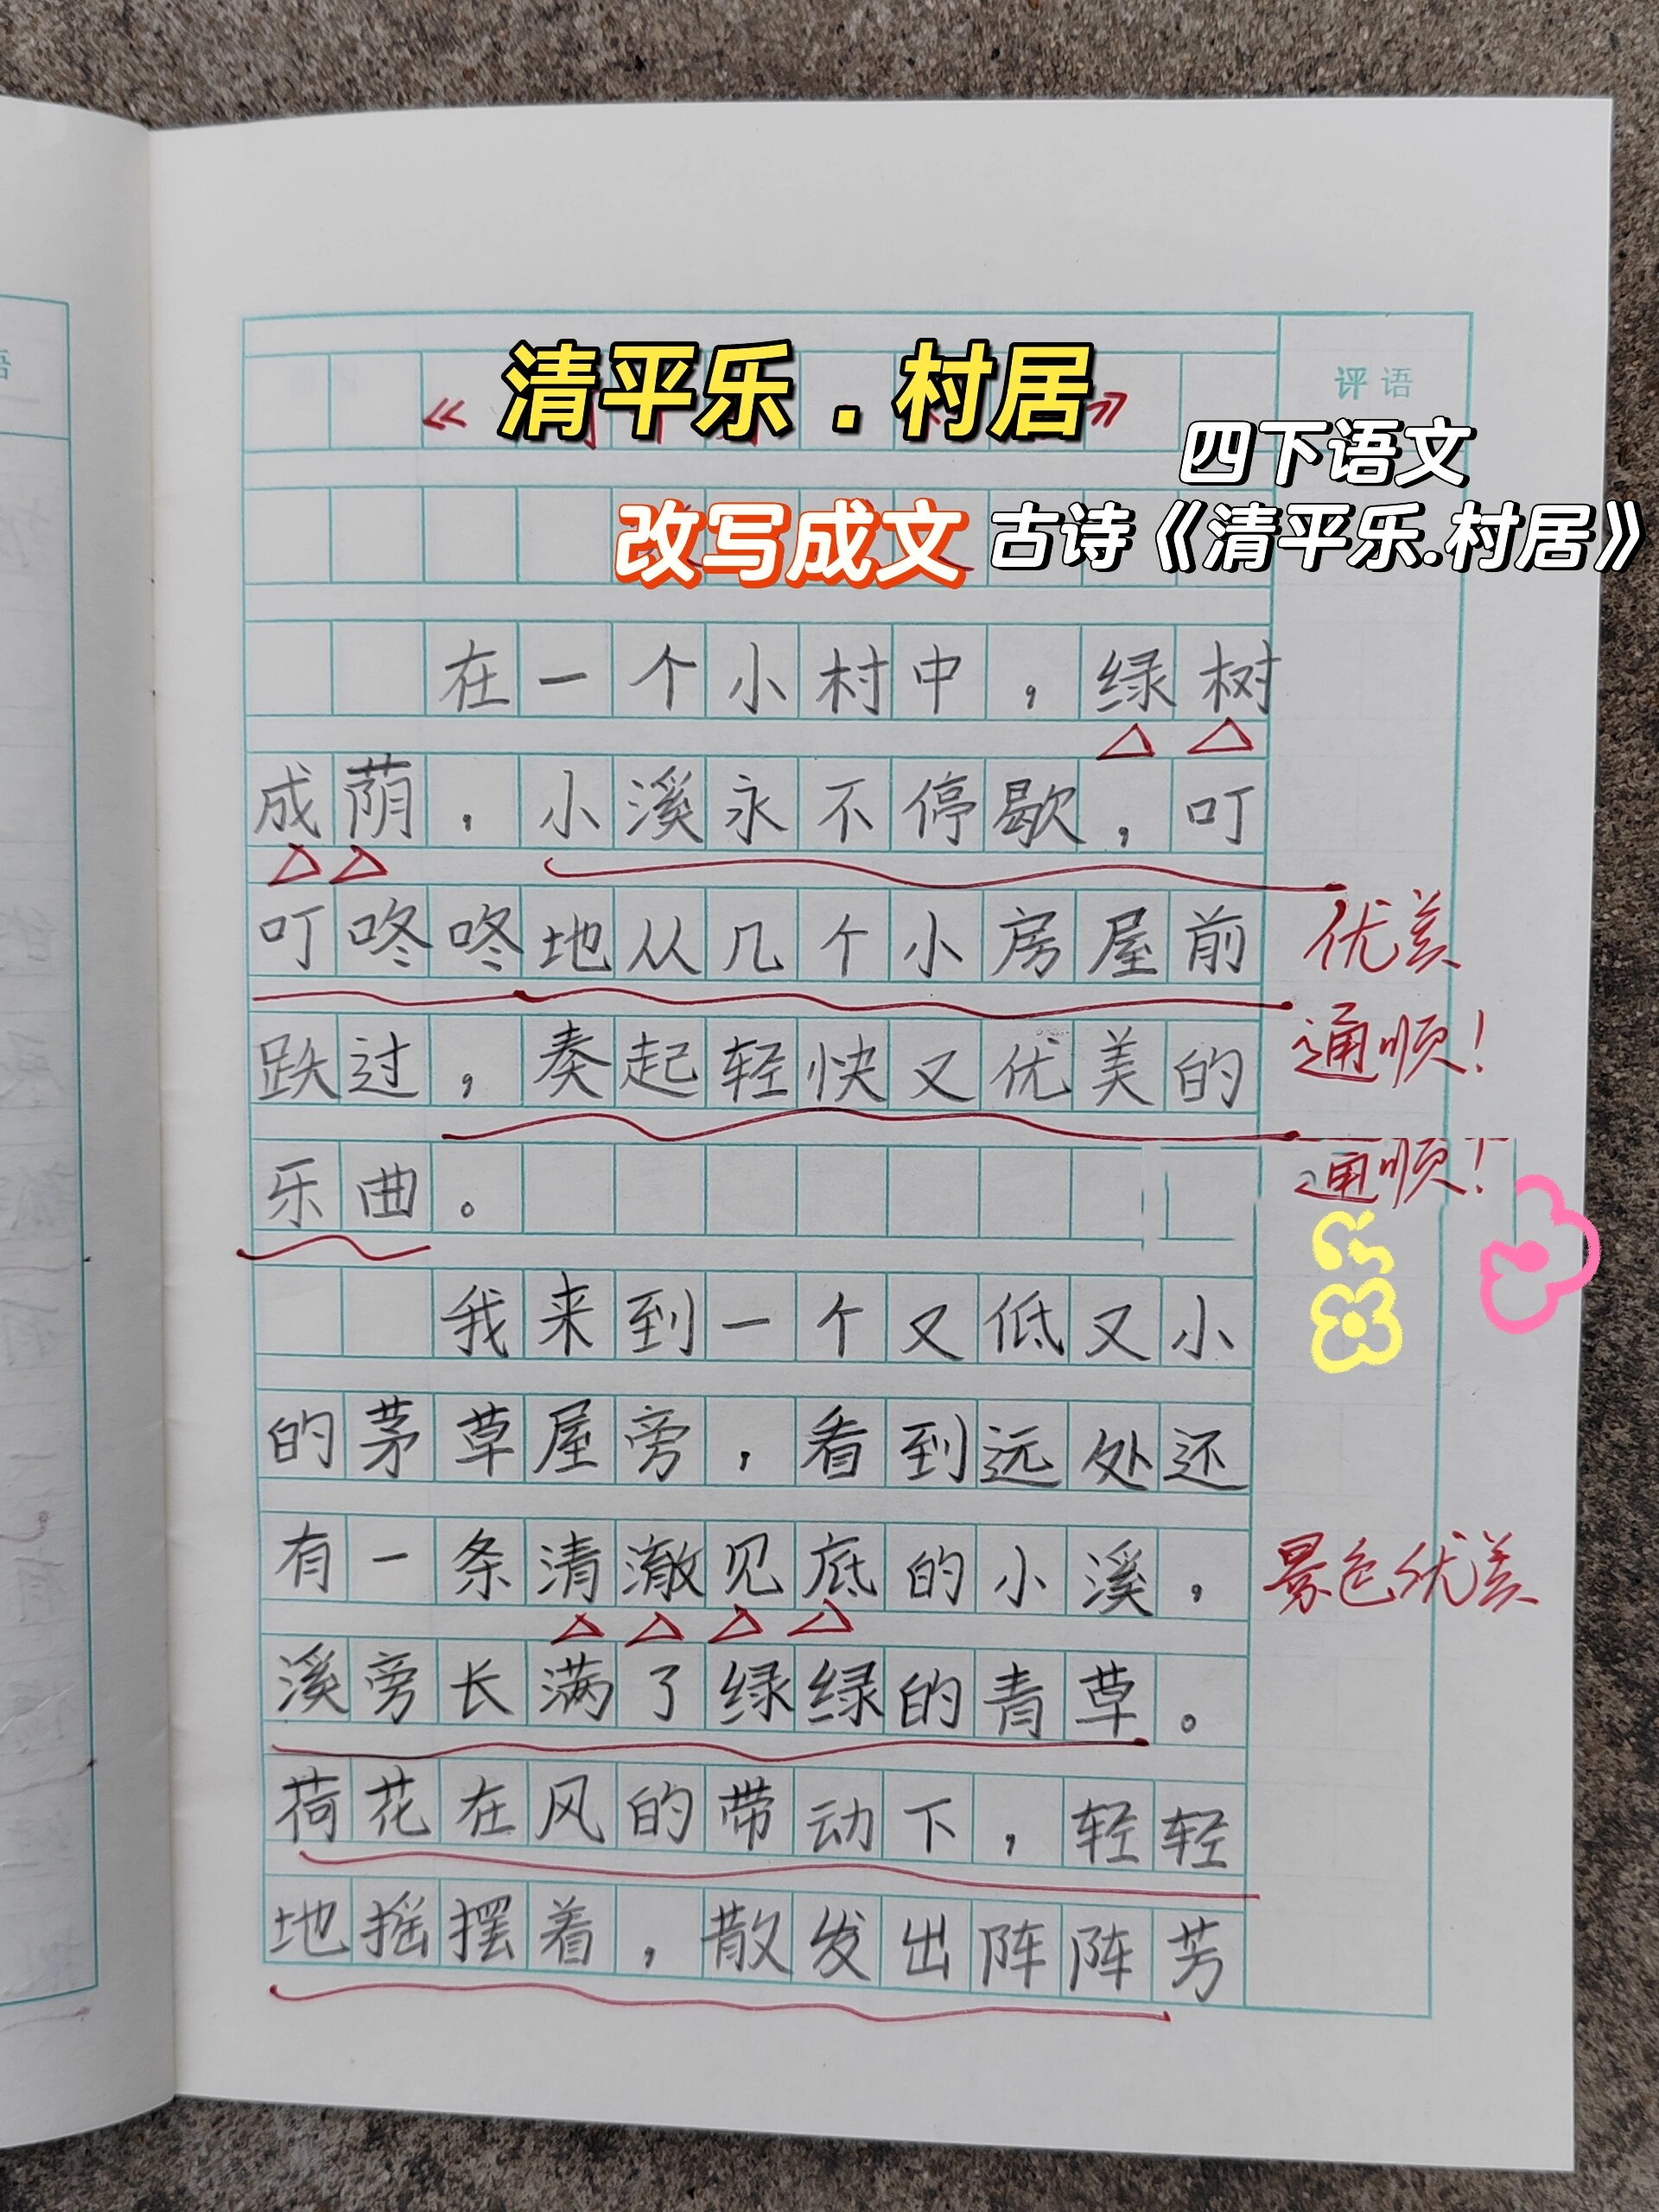 评语
清平乐.村居
《 》
四下语文
改写成文 古诗《清平乐.村居》
在一个小村中，绿树
成荫，小溪永不停歇，叮
叮咚咚地从几个小房屋前
跌过，奏起轻快又优美的
乐曲。
优美
通顺！
通顺！
我来到一个又低又小
的茅草屋旁，看到远处还
有一条清澈见底的小溪，
溪旁长满了绿绿的青草。
荷花在风的带动下，轻轻
地摇摆着，散发出阵阵芳
景色优美